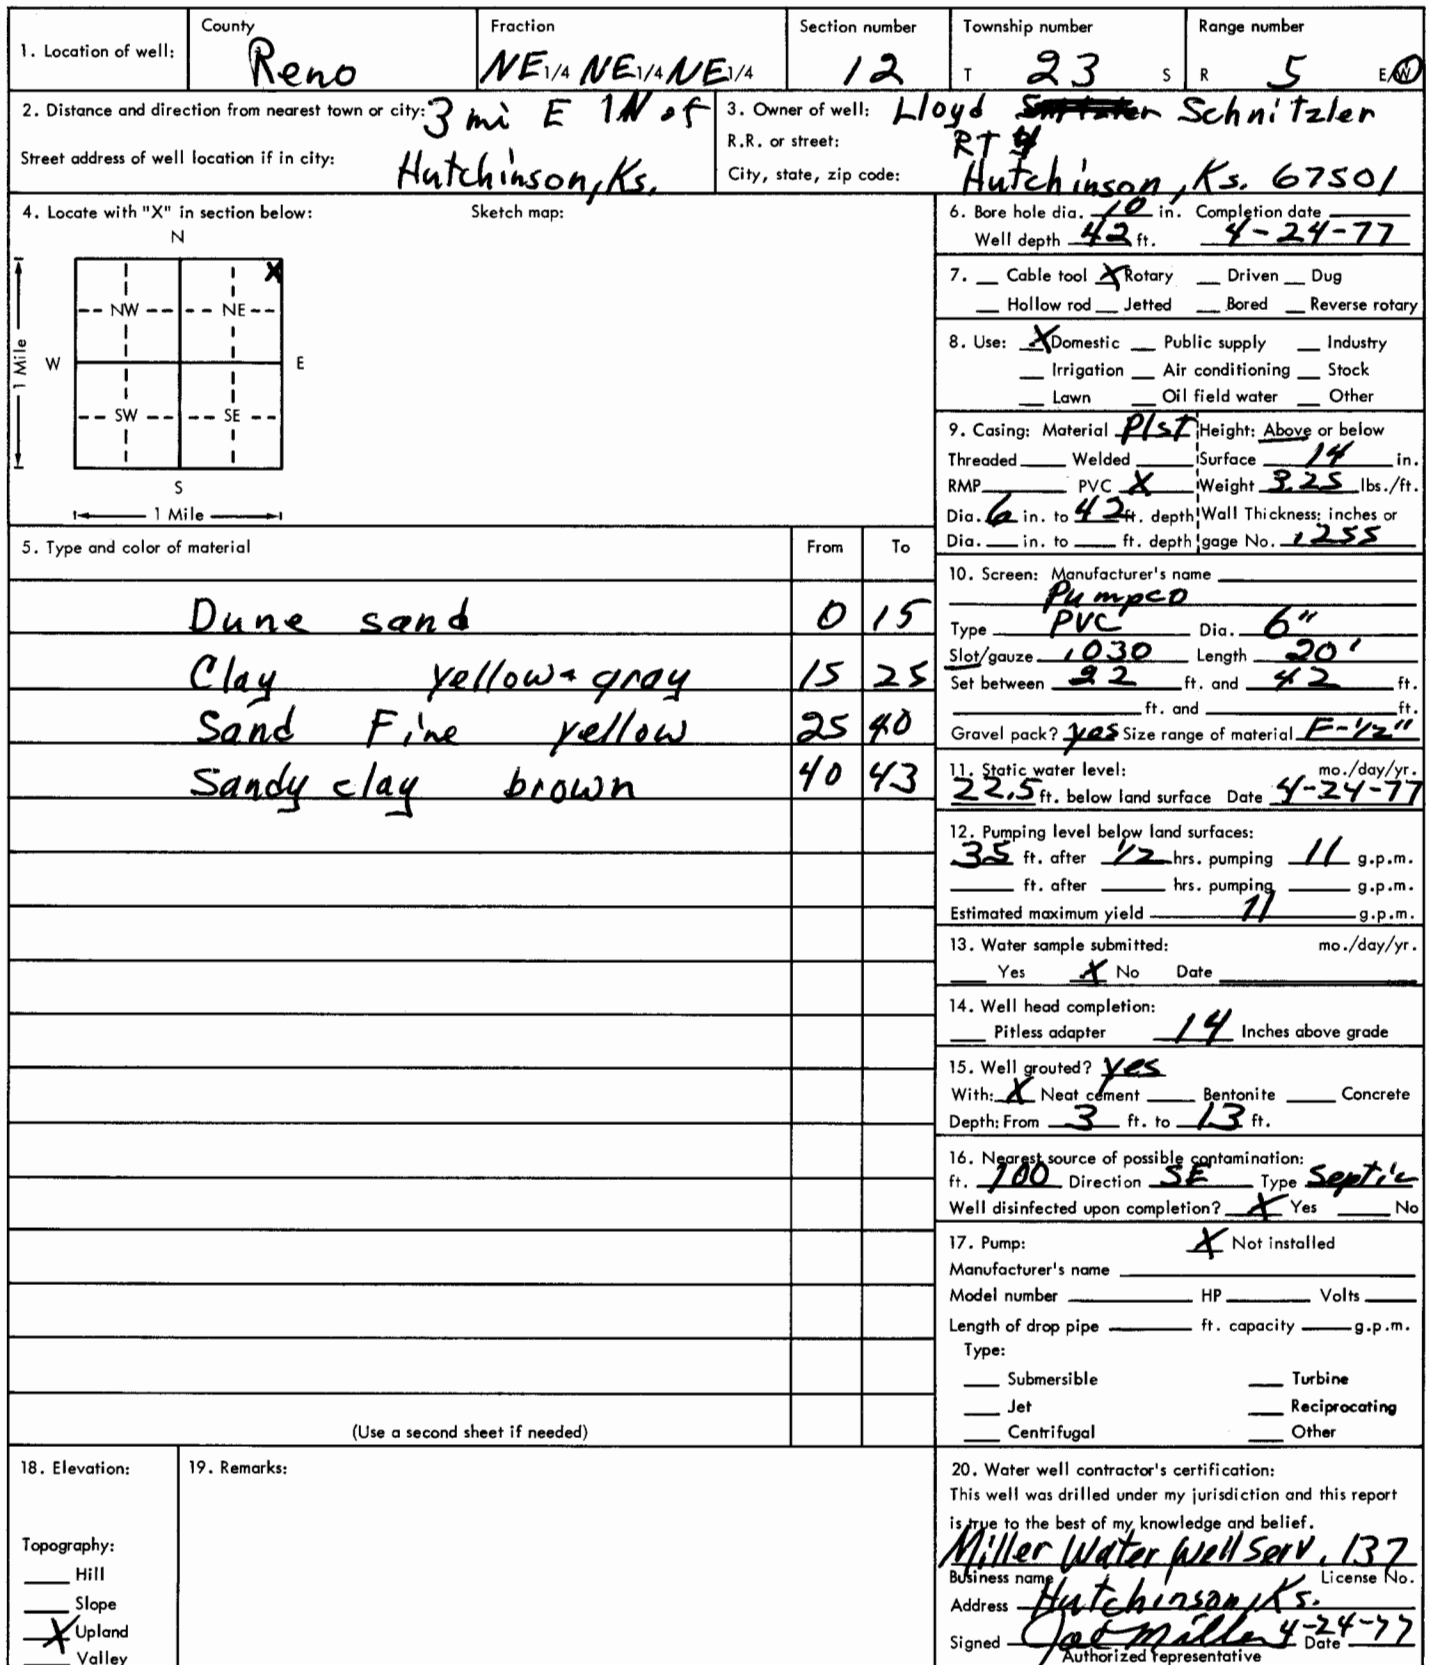 1. Location of well: County Reno Fraction NE 1/4 NE 1/4 NE 1/4 Section number 12 Township number T 23 S Range number R 5 E/W
2. Distance and direction from nearest town or city: 3 mi E 1 N of
Street address of well location if in city: Hutchinson, Ks.
3. Owner of well: Lloyd Schnitzler
R.R. or street: RT 4
City, state, zip code: Hutchinson, Ks. 67501
4. Locate with "X" in section below: Sketch map:
N
X
NW NE
W E
1 Mile
SW SE
S
1 Mile
5. Type and color of material From To
Dune sand 0 15
Clay yellow & gray 15 25
Sand Fine yellow 25 40
Sandy clay brown 40 43
(Use a second sheet if needed)
6. Bore hole dia. 10 in. Completion date
Well depth 42 ft. 4-24-77
7. Cable tool X Rotary Driven Dug
Hollow rod Jetted Bored Reverse rotary
8. Use: X Domestic Public supply Industry
Irrigation Air conditioning Stock
Lawn Oil field water Other
9. Casing: Material Plst Height: Above or below
Threaded Welded Surface 14 in.
RMP PVC X Weight 3.25 lbs./ft.
Dia. 6 in. to 42 ft. depth Wall Thickness: inches or
Dia. in. to ft. depth gage No. .255
10. Screen: Manufacturer's name
Pumpco
Type PVC Dia. 6"
Slot/gauze .030 Length 20'
Set between 22 ft. and 42 ft.
ft. and ft.
Gravel pack? yes Size range of material F-1/2"
11. Static water level: mo./day/yr.
22.5 ft. below land surface Date 4-24-77
12. Pumping level below land surfaces:
35 ft. after 1/2 hrs. pumping 11 g.p.m.
ft. after hrs. pumping g.p.m.
Estimated maximum yield 11 g.p.m.
13. Water sample submitted: mo./day/yr.
Yes X No Date
14. Well head completion:
Pitless adapter 14 Inches above grade
15. Well grouted? yes
With: X Neat cement Bentonite Concrete
Depth: From 3 ft. to 13 ft.
16. Nearest source of possible contamination:
ft. 100 Direction SE Type Septic
Well disinfected upon completion? X Yes No
17. Pump: X Not installed
Manufacturer's name
Model number HP Volts
Length of drop pipe ft. capacity g.p.m.
Type:
Submersible Turbine
Jet Reciprocating
Centrifugal Other
18. Elevation:
Topography:
Hill
Slope
X Upland
Valley
19. Remarks:
20. Water well contractor's certification:
This well was drilled under my jurisdiction and this report
is true to the best of my knowledge and belief.
Miller Water Well Serv. 137
Business name License No.
Address Hutchinson, Ks.
Signed Joe Miller 4-24-77 Date
Authorized representative